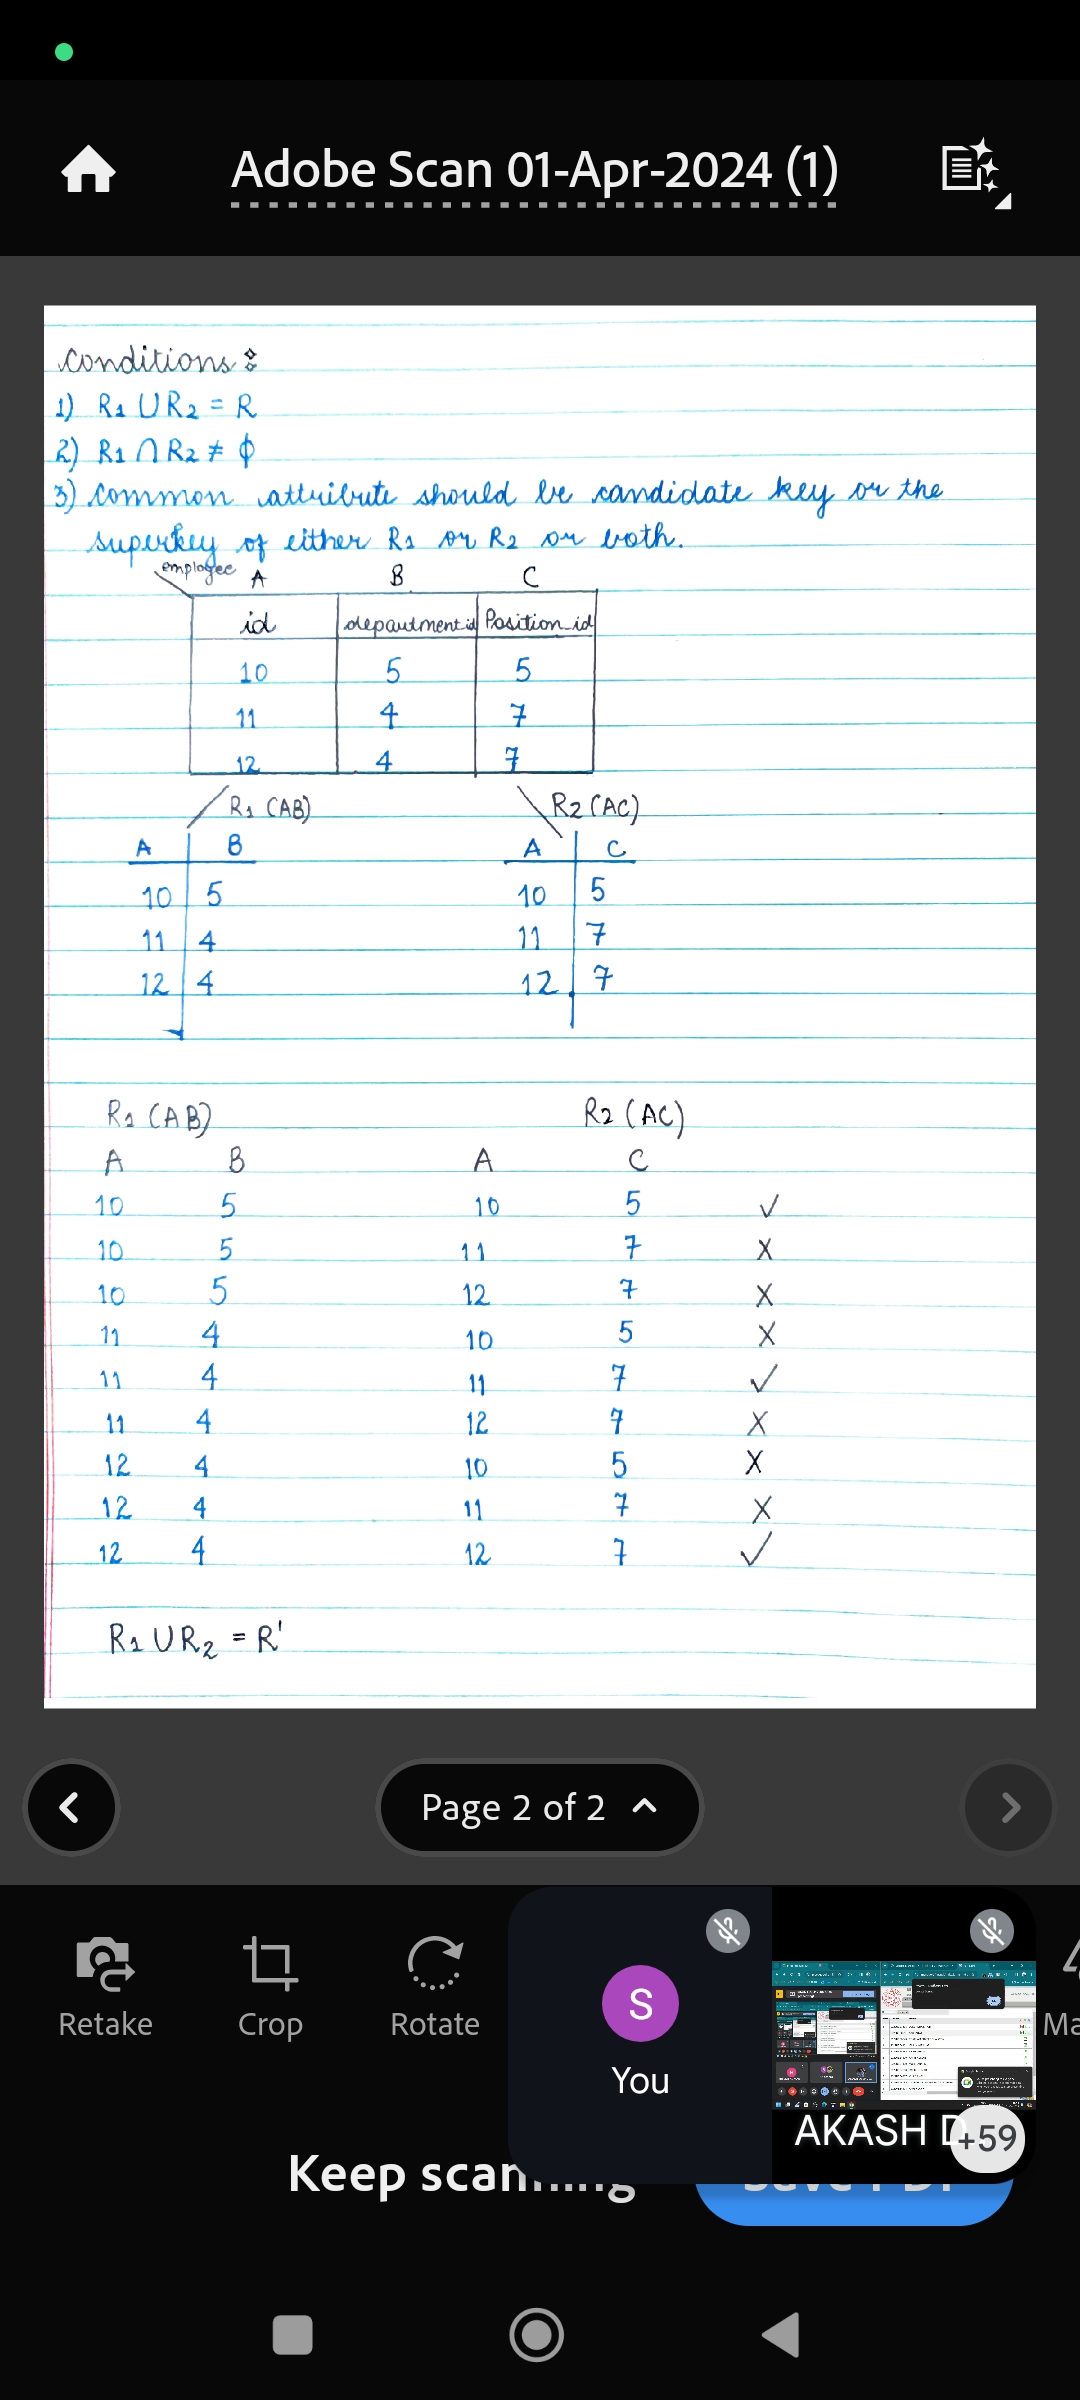 Adobe Scan 01-Apr-2024 (1)
Conditions :
1) R1 ∪ R2 = R
2) R1 ∩ R2 ≠ ϕ
3) Common attribute should be candidate key or the
superkey of either R1 or R2 or both.
employee A B C
id department id Position_id
10 5 5
11 4 7
12 4 7
R1 (AB) R2 (AC)
A B A C
10 5 10 5
11 4 11 7
12 4 12 7
R1 (AB) R2 (AC)
A B A C
10 5 10 5 ✓
10 5 11 7 X
10 5 12 7 X
11 4 10 5 X
11 4 11 7 ✓
11 4 12 7 X
12 4 10 5 X
12 4 11 7 X
12 4 12 7 ✓
R1 ∪ R2 = R'
Page 2 of 2
Retake Crop Rotate
S
You
AKASH D
+59
Keep scanning
Save PDF